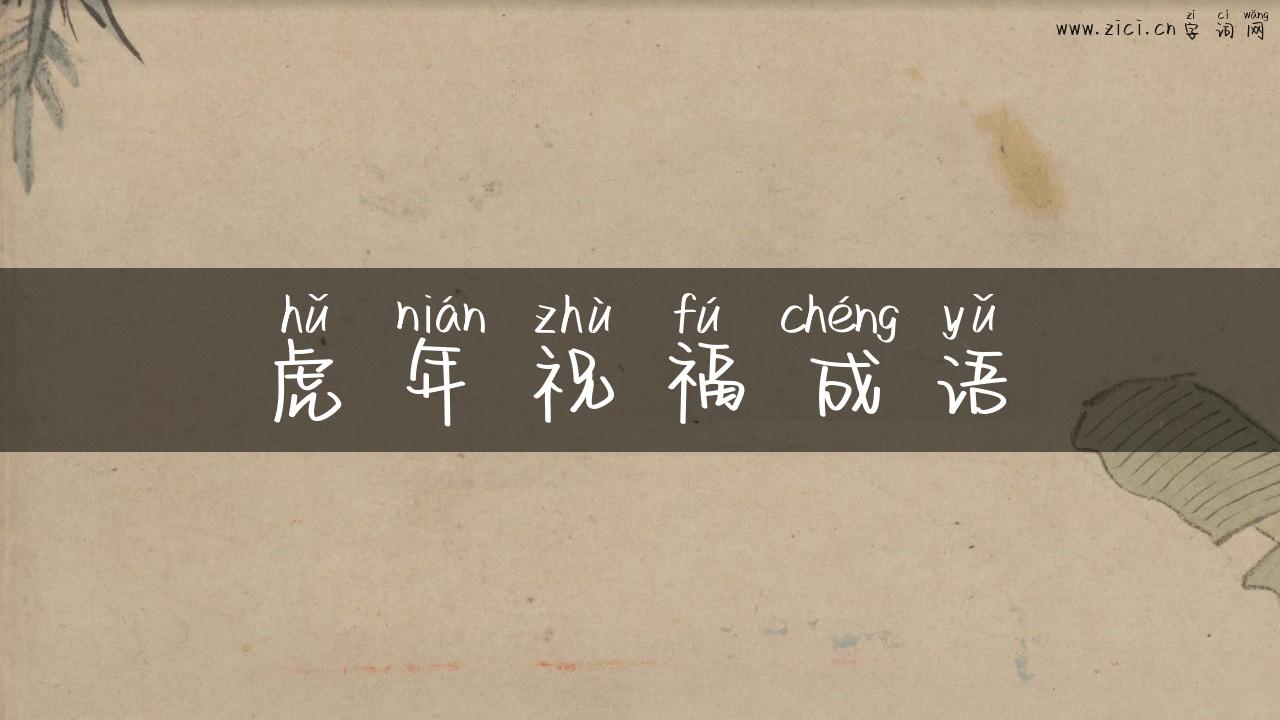 zì cí wǎng
www.zici.cn 字词网
hǔ nián zhù fú chéng yǔ
虎年祝福成语